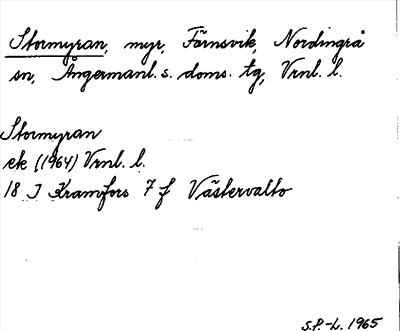 Stormyran, myr, Färnsvik, Nordingrå
sn, Ångermanl. s. doms. tg, Vrnl. l.
Stormyran
ek (1964) Vrnl. l.
18 I Kramfors 7 f Västervalto
S.P.-L. 1965